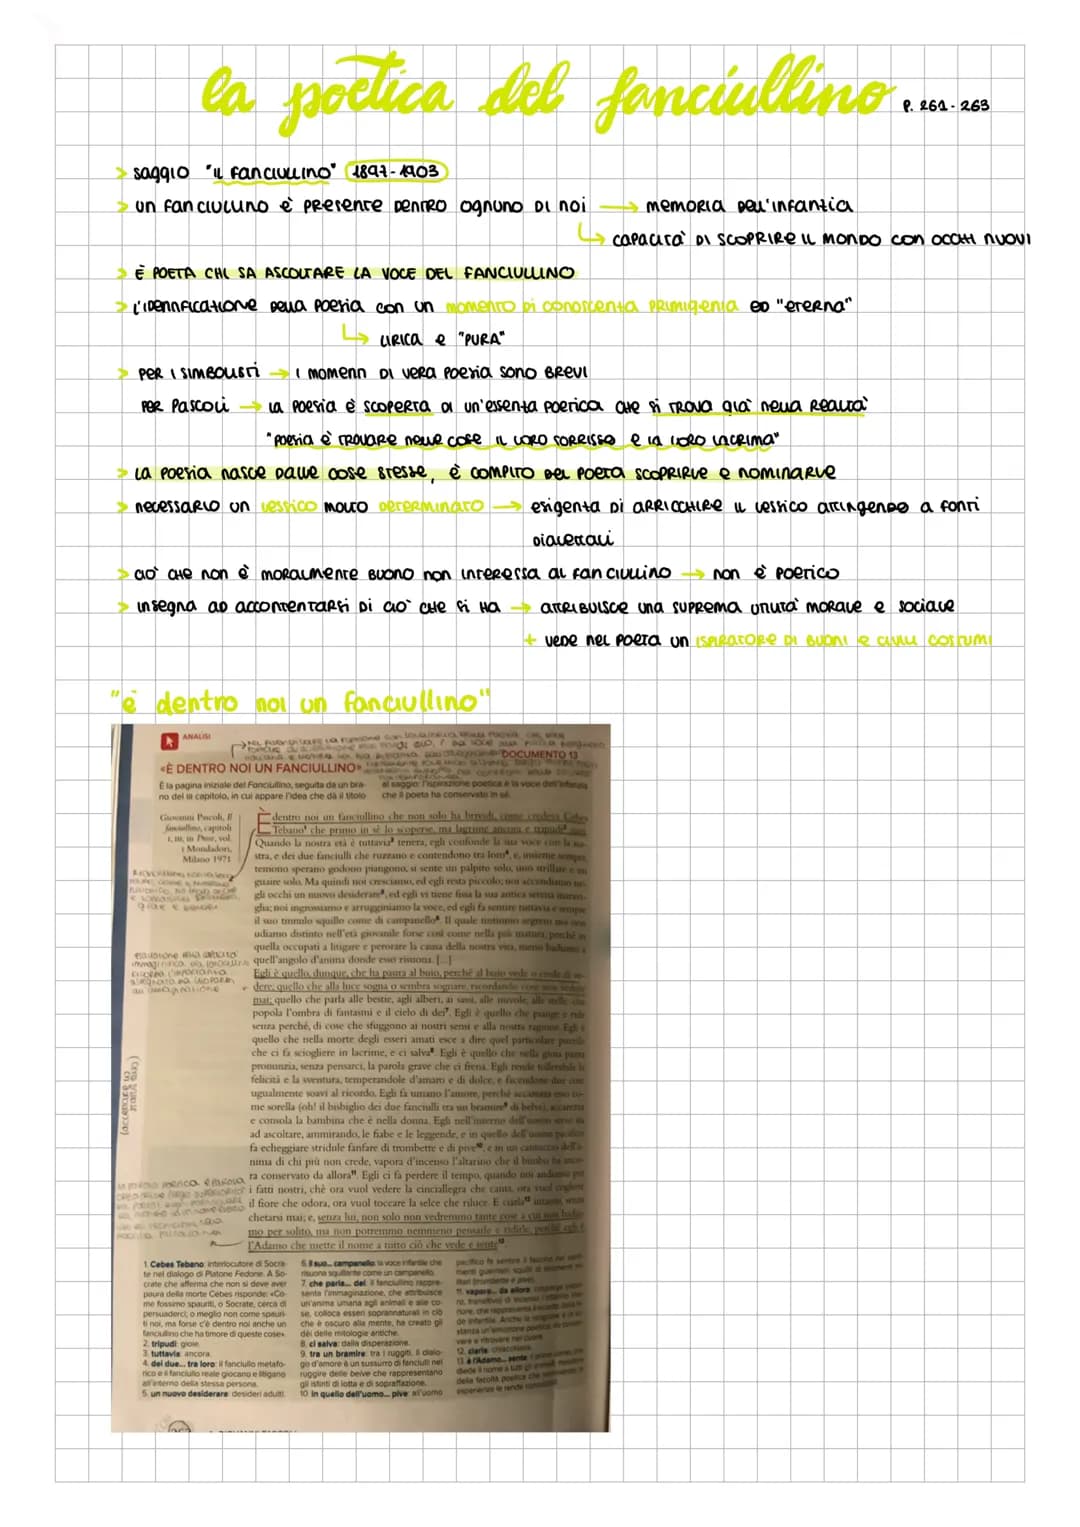 la poetica del fanciullino P. 261-263
> saggio "il fanciullino" 1897-1903
> un fanciullino è presente dentro ognuno di noi → memoria dell'infanzia
↳ capacità di scoprire il mondo con occhi nuovi
> È POETA CHI SA ASCOLTARE LA VOCE DEL FANCIULLINO
> l'identificazione della poesia con un momento di conoscenza primigenia ed "eterna"
↳ lirica e "PURA"
> PER I SIMBOLISTI → i momenti di vera poesia sono brevi
PER Pascoli → la poesia è scoperta di un'essenza poetica che si trova già nella realtà
"poesia è trovare nelle cose il loro sorriso e la loro lacrima"
> la poesia nasce dalle cose stesse, è compito del poeta scoprirle e nominarle
> necessario un lessico molto determinato → esigenza di arricchire il lessico attingendo a fonti
dialettali
> ciò che non è moralmente buono non interessa al fanciullino → non è poetico
> insegna ad accontentarsi di ciò che si ha → attribuisce una suprema utilità morale e sociale
+ vede nel poeta un ispiratore di buoni e civili costumi
"è dentro noi un fanciullino"
ANALISI
DOCUMENTO 13
«È DENTRO NOI UN FANCIULLINO»
È la pagina iniziale del Fanciullino, seguita da un bra-
no del III capitolo, in cui appare l'idea che dà il titolo
al saggio: l'ispirazione poetica è la voce dell'infanzia
che il poeta ha conservato in sé.
Giovanni Pascoli, Il
fanciullino, capitoli
I, III, in Prose, vol.
I Mondadori,
Milano 1971
È dentro noi un fanciullino che non solo ha brividi, come credeva Cebes
Tebano¹ che primo in sé lo scoperse, ma lagrime ancora e tripudi² suoi.
Quando la nostra età è tuttavia³ tenera, egli confonde la sua voce con la no-
stra, e dei due fanciulli che ruzzano e contendono tra loro⁴, e, insieme sempre,
temono sperano godono piangono, si sente un palpito solo, uno strillare e un
guaire solo. Ma quindi noi cresciamo, ed egli resta piccolo; noi accendiamo ne-
gli occhi un nuovo desiderare⁵, ed egli vi tiene fissa la sua antica serena maravi-
glia; noi ingrossiamo e arrugginiamo la voce, ed egli fa sentire tuttavia e sempre
il suo tinnulo squillo come di campanello⁶. Il quale tintinnio segreto noi non
udiamo distinto nell'età giovanile forse così come nella più matura, perché in
quella occupati a litigare e perorare la causa della nostra vita, meno badiamo a
quell'angolo d'anima donde esso risuona. [...]
Egli è quello, dunque, che ha paura al buio, perché al buio vede o crede di ve-
dere; quello che alla luce sogna o sembra sognare, ricordando cose non vedute
mai; quello che parla alle bestie, agli alberi, ai sassi, alle nuvole, alle stelle: che
popola l'ombra di fantasmi e il cielo di dei⁷. Egli è quello che piange e ride
senza perché, di cose che sfuggono ai nostri sensi e alla nostra ragione. Egli è
quello che nella morte degli esseri amati esce a dire quel particolare puerile
che ci fa sciogliere in lacrime, e ci salva⁸. Egli è quello che nella gioia pazza
pronunzia, senza pensarci, la parola grave che ci frena. Egli rende tollerabile la
felicità e la sventura, temperandole d'amaro e di dolce, e facendone due cose
ugualmente soavi al ricordo. Egli fa umano l'amore, perché accarezza esso co-
me sorella (oh! il bisbiglio dei due fanciulli tra un bramire⁹ di belve), accarezza
e consola la bambina che è nella donna. Egli nell'interno dell'uomo serio sta
ad ascoltare, ammirando, le fiabe e le leggende, e in quello dell'uomo pacifico
fa echeggiare stridule fanfare di trombette e di pive¹⁰, e in un cantuccio dell'a-
nima di chi più non crede, vapora d'incenso l'altarino che il bimbo ha anco-
ra conservato da allora¹¹. Egli ci fa perdere il tempo, quando noi andiamo per
i fatti nostri, chè ora vuol vedere la cinciallegra che canta, ora vuol cogliere
il fiore che odora, ora vuol toccare la selce che riluce. E ciarla¹² intanto, senza
chetarsi mai; e, senza lui, non solo non vedremmo tante cose a cui non badia-
mo per solito, ma non potremmo nemmeno pensarle e ridirle, perché egli è
l'Adamo che mette il nome a tutto ciò che vede e sente¹³.
1. Cebes Tebano: interlocutore di Socra-
te nel dialogo di Platone Fedone. A So-
crate che afferma che non si deve aver
paura della morte Cebes risponde: «Co-
me fossimo spauriti, o Socrate, cerca di
persuaderci; o meglio non come spauri-
ti noi, ma forse c'è dentro noi anche un
fanciullino che ha timore di queste cose».
2. tripudi: gioie.
3. tuttavia: ancora.
4. dei due... tra loro: il fanciullo metafo-
rico e il fanciullo reale giocano e litigano
all'interno della stessa persona.
5. un nuovo desiderare: desideri adulti.
6. Il suo... campanello: la voce infantile che
risuona squillante come un campanello.
7. che parla... dei: il fanciullino rappre-
senta l'immaginazione, che attribuisce
un'anima umana agli animali e alle co-
se, colloca esseri soprannaturali in ciò
che è oscuro alla mente, ha creato gli
dèi delle mitologie antiche.
8. ci salva: dalla disperazione.
9. tra un bramire: tra i ruggiti. Il dialo-
go d'amore è un sussurro di fanciulli nel
ruggire delle belve che rappresentano
gli istinti di lotta e di sopraffazione.
10 in quello dell'uomo... pive: all'uomo
11. vapora... da allora:
12. ciarla: chiacchiera.
13. è l'Adamo... sente: